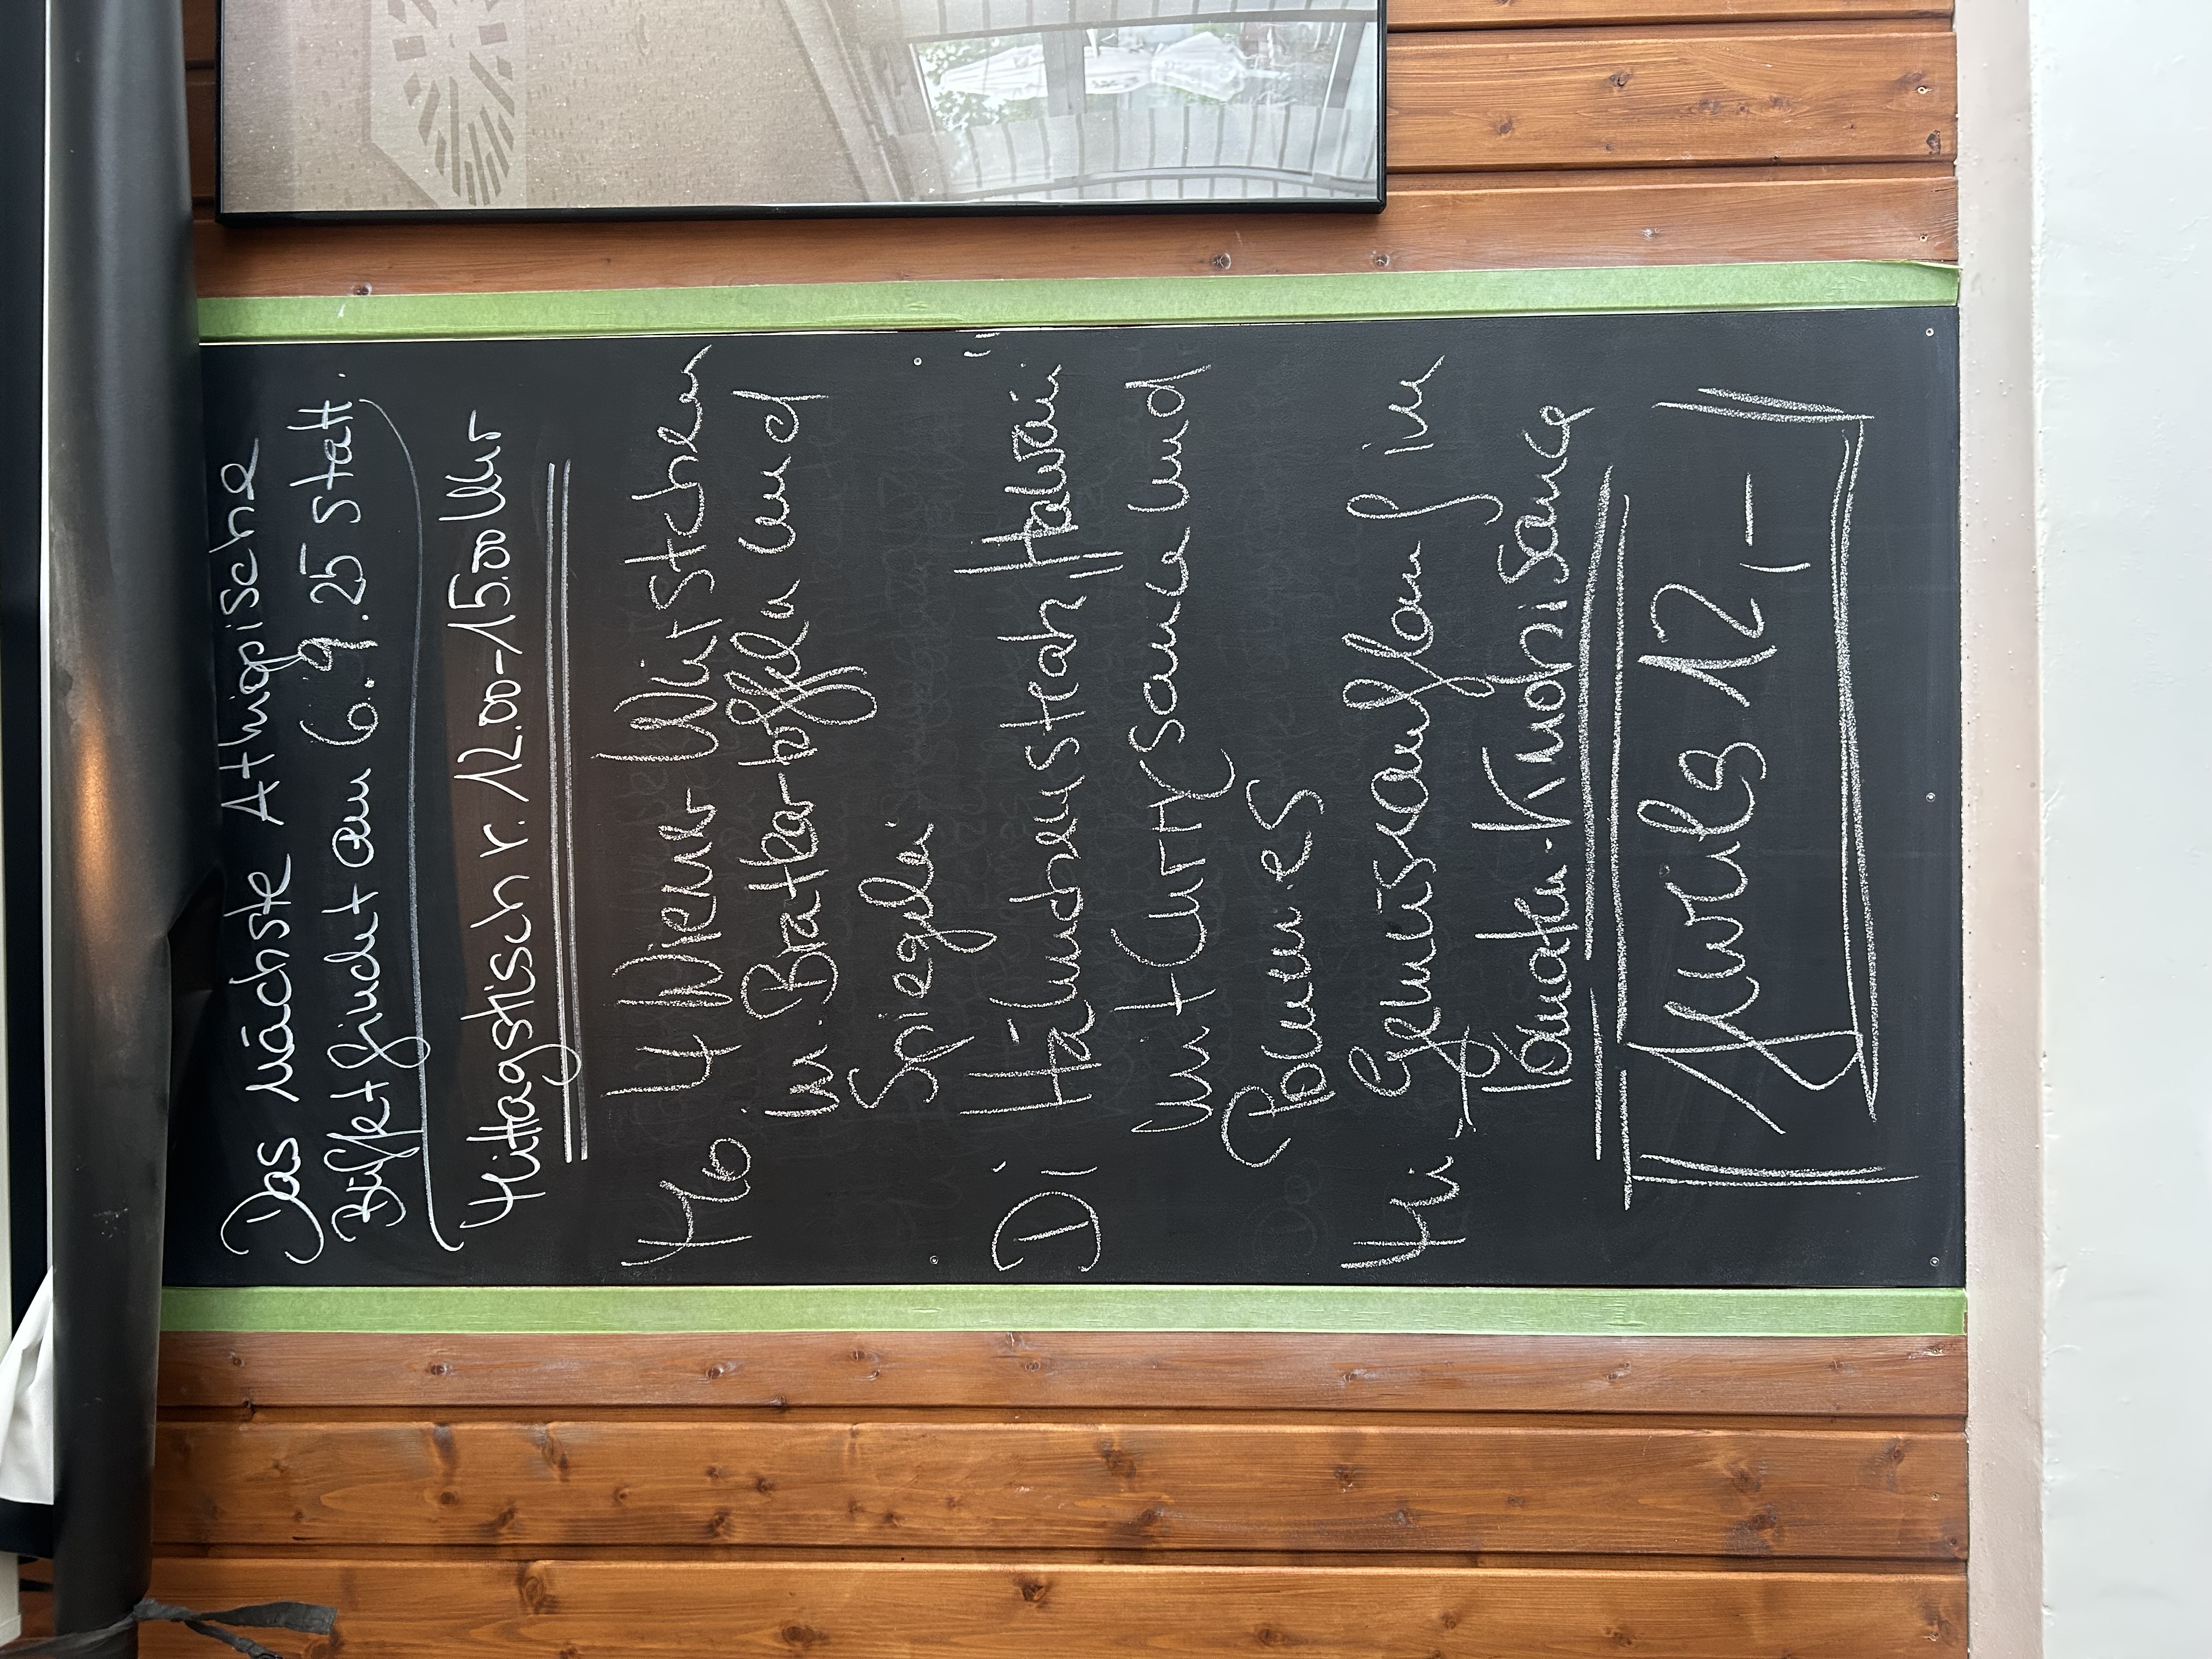 Das nächste Äthiopische
Büffet findet am 6.9.25 statt.
Mittagstisch v. 12.00-15.00 Uhr
Mo. 4 Wiener Würstchen
m. Bratkartoffeln und
Spiegelei
Di Hähnchenstrah "Hawai"
mit Curry Sauce und
Pommes
Mi. Gemüseauflauf in
Tomaten-Knobi Sauce
Jeweils 12,-